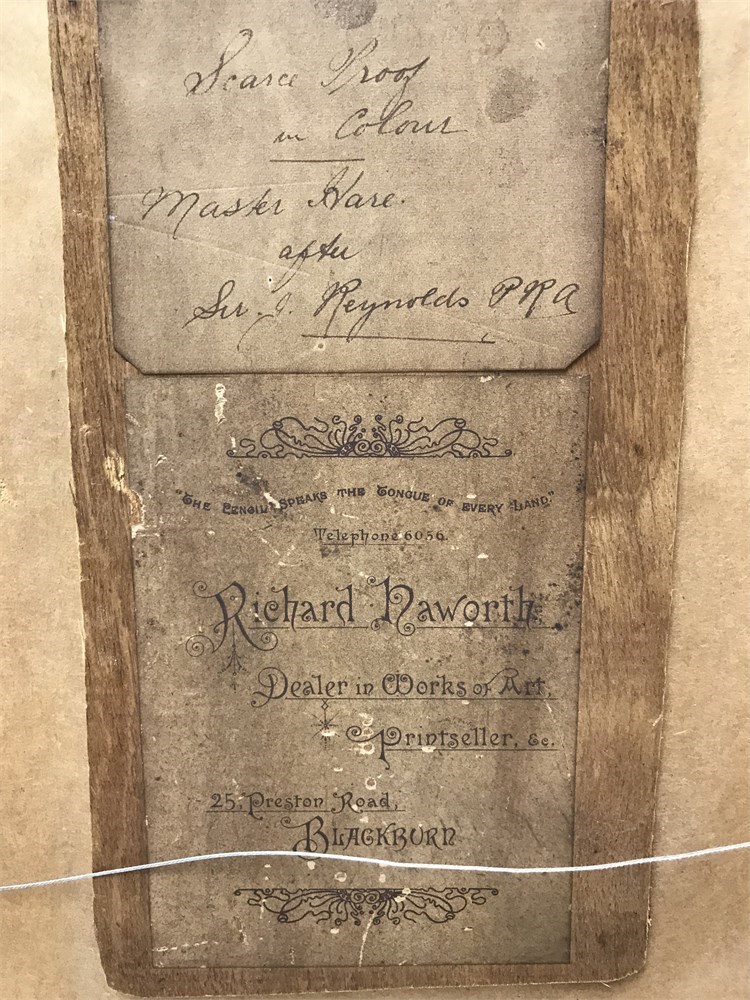 Scarce Proof
in Colour
Master Hare.
after
Sir. J. Reynolds P R A
"The Pencil Speaks the Tongue of every Land"
Telephone 6056.
Richard Haworth.
Dealer in Works of Art,
Printseller, &c.
25, Preston Road,
BLACKBURN